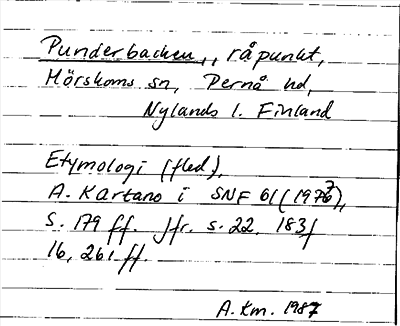 Punderbacken,, råpunkt,
Mörskoms sn, Pernå hd,
Nylands l. Finland
Etymologi (fled),
A. Kartano i SNF 61 (1972),
S. 179 ff. Jfr. s. 22, 183 f
16, 261 ff.
A. Km. 1987